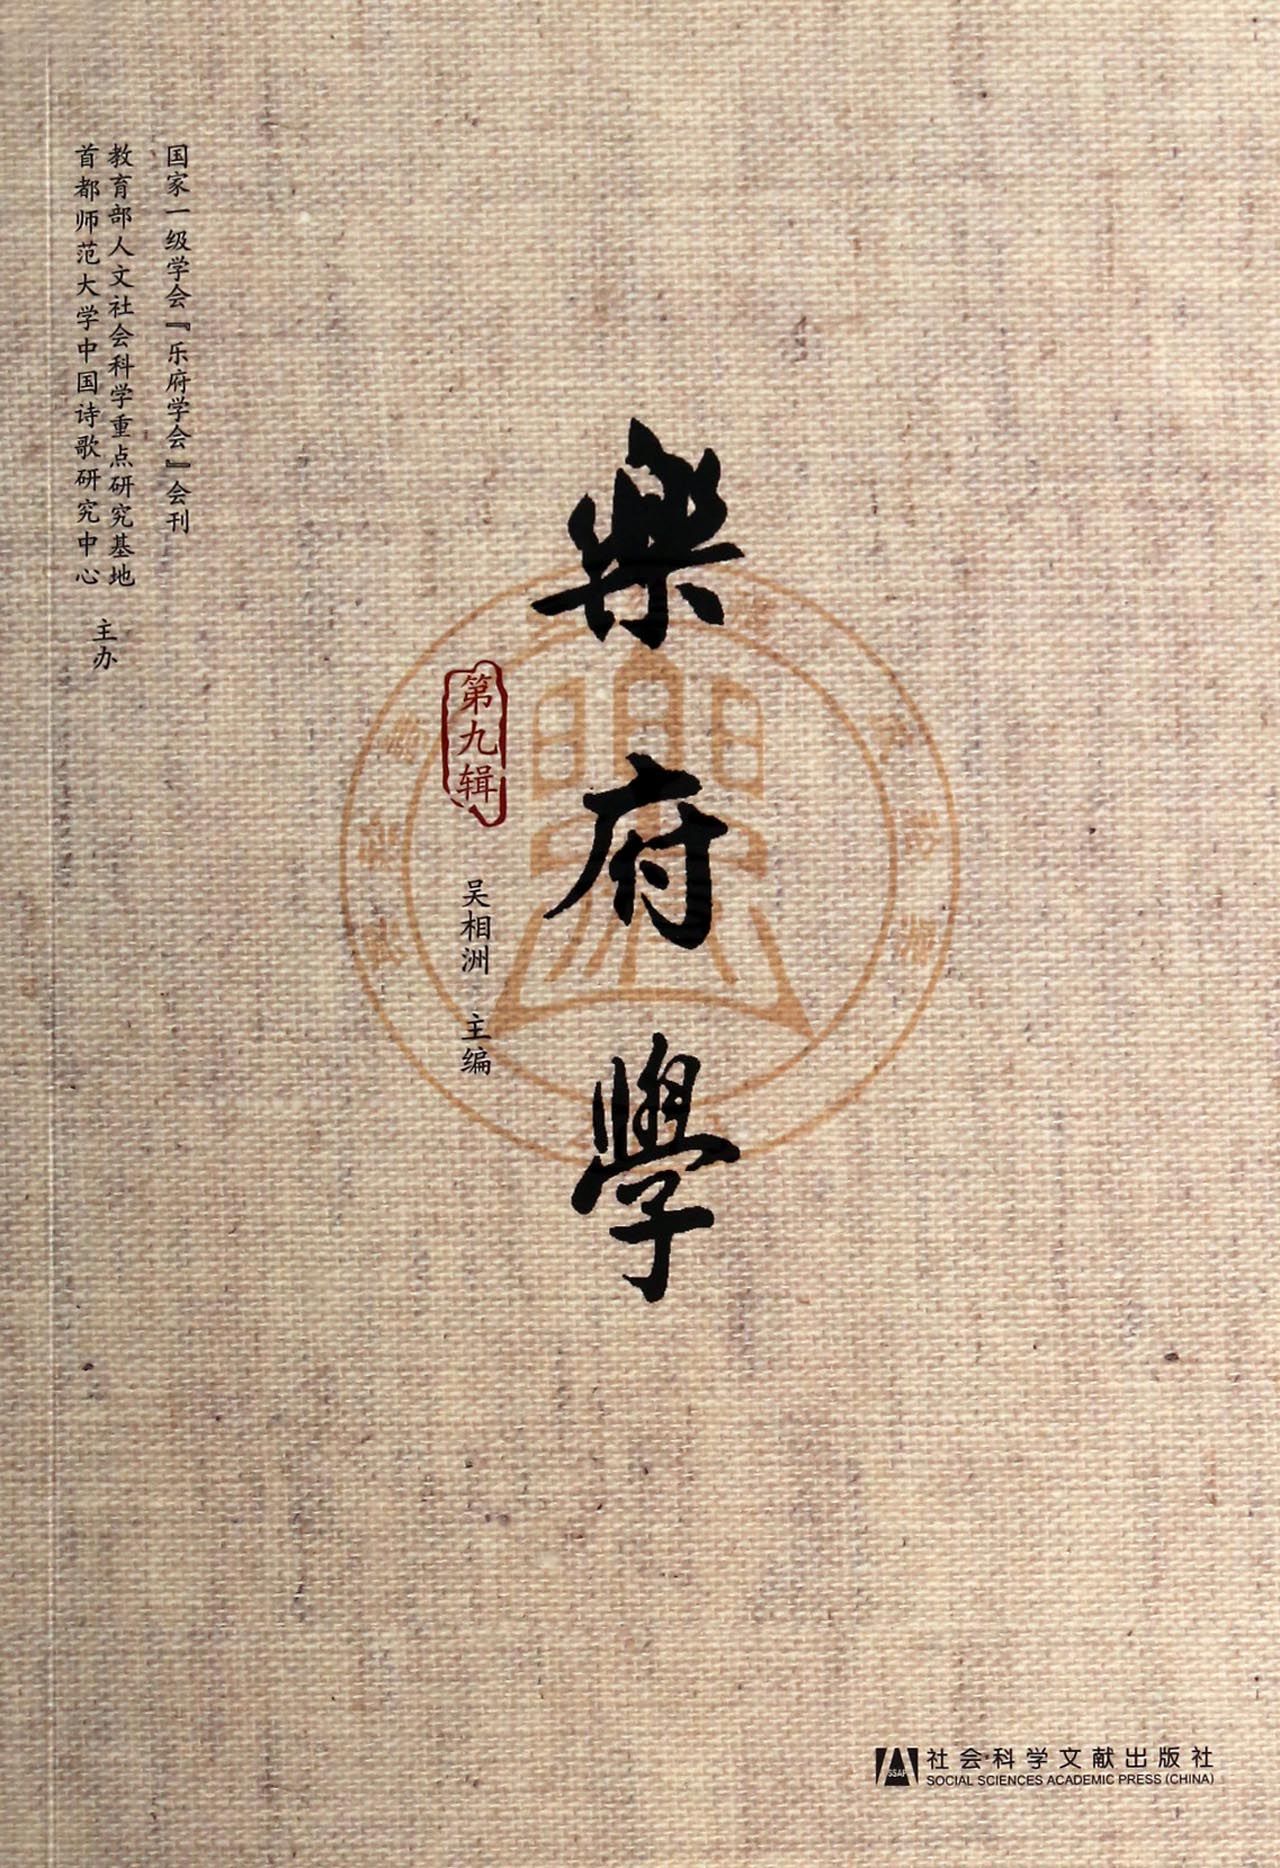 国家一级学会『乐府学会』会刊
教育部人文社会科学重点研究基地
首都师范大学中国诗歌研究中心
主办
樂府學
第九辑
吴相洲 主编
SSAP
社会科学文献出版社
SOCIAL SCIENCES ACADEMIC PRESS (CHINA)